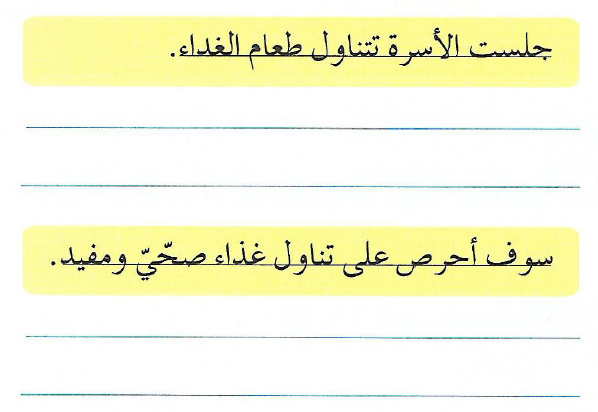 جلست الأسرة تتناول طعام الغداء.
سوف أحرص على تناول غذاء صحّيّ ومفيد.